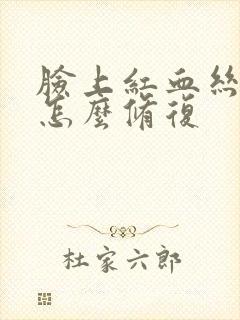 臉上紅血絲
怎麼脩復
杜家六郎